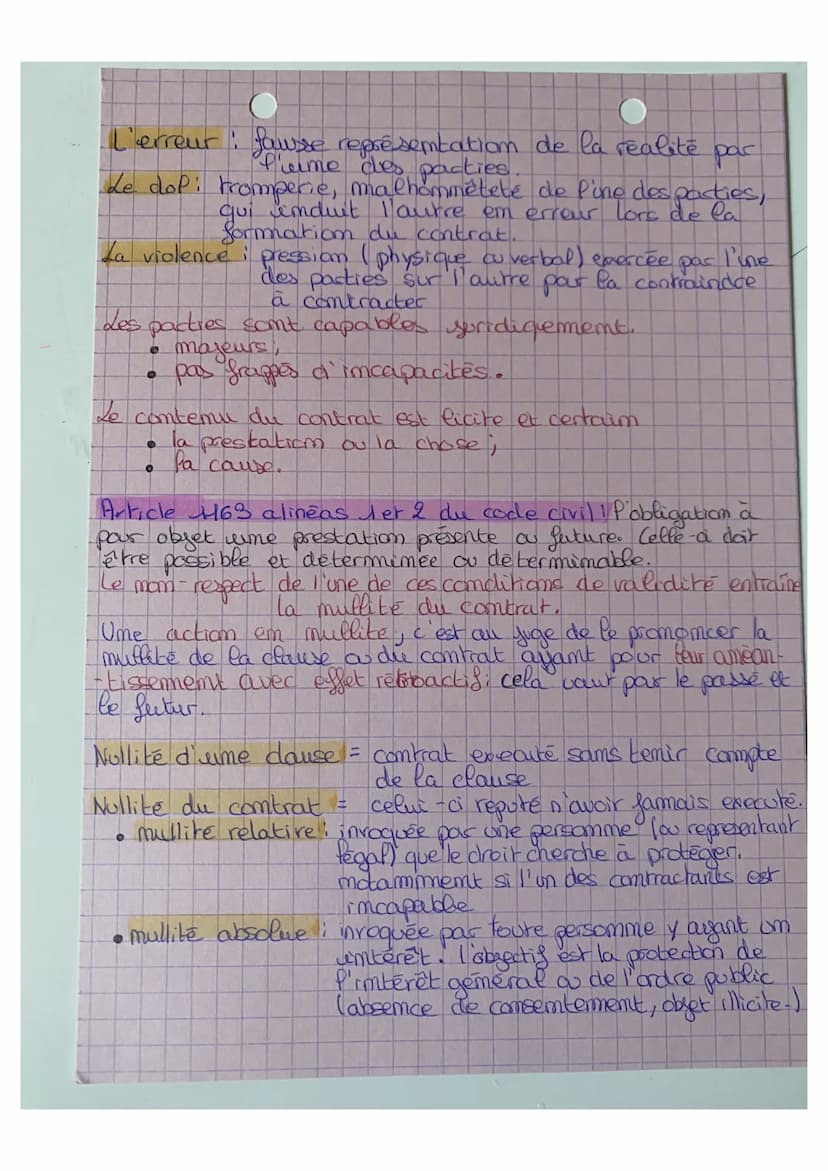 L'erreur : fausse représentation de la réalité par
l'une des parties.
Le dol : tromperie, malhonnêteté de l'une des parties,
qui induit l'autre en erreur lors de la
formation du contrat.
La violence : pression (physique ou verbal) exercée par l'une
des parties sur l'autre pour la contraindre
à contracter
Les parties sont capables juridiquement.
• majeurs ;
• pas frappés d'incapacités.
Le contenu du contrat est licite et certain
• la prestation ou la chose ;
• la cause.
Article 1163 alinéas 1 et 2 du code civil : l'obligation à
pour objet une prestation présente ou future. Celle-à doit
être possible et déterminée ou déterminable.
Le non-respect de l'une de ces conditions de validité entraîne
la nullité du contrat.
Une action en nullité, c'est au juge de le prononcer la
nullité de la clause ou du contrat ayant pour leur anéan-
-tissement avec effet rétroactif : cela vaut par le passé et
le futur.
Nullité d'une clause = contrat executé sans tenir compte
de la clause
Nullité du contrat = celui-ci reputé n'avoir jamais executé.
• nullité relative : invoquée par une personne (ou representant
légal) que le droit cherche à protéger.
notamment si l'un des contractants est
incapable
• nullité absolue : invoquée par toute personne y ayant un
intérêt. l'objectif est la protection de
l'intérêt général ou de l'ordre public
(absence de consentement, objet illicite.)